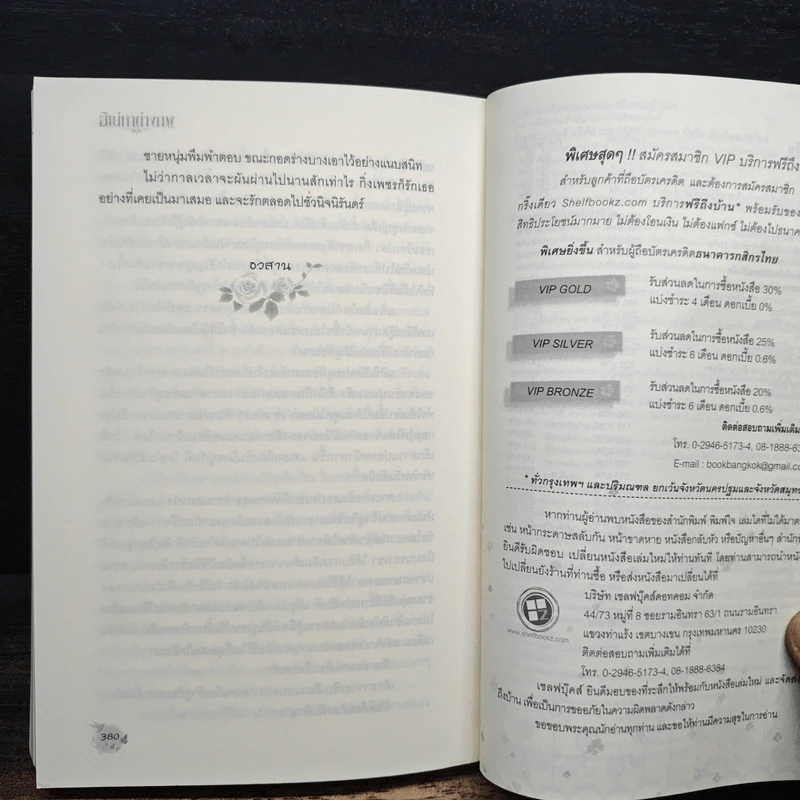 เสน่หาข้ามภพ
ชายหนุ่มพึมพำตอบ ขณะกอดร่างบางเอาไว้อย่างแนบสนิท
ไม่ว่ากาลเวลาจะผันผ่านไปนานสักเท่าไร กิ่งเพชรก็รักเธอ
อย่างที่เคยเป็นมาเสมอ และจะรักตลอดไปชั่วนิจนิรันดร์
อวสาน
380
พิเศษสุดๆ !! สมัครสมาชิก VIP บริการฟรีถึง
สำหรับลูกค้าที่ถือบัตรเครดิต และต้องการสมัครสมาชิก
กริ๊งเดียว Shelfbookz.com บริการฟรีถึงบ้าน* พร้อมรับของ
สิทธิประโยชน์มากมาย ไม่ต้องโอนเงิน ไม่ต้องแฟกซ์ ไม่ต้องไปธนาคา
พิเศษยิ่งขึ้น สำหรับผู้ถือบัตรเครดิตธนาคารกสิกรไทย
VIP GOLD
รับส่วนลดในการซื้อหนังสือ 30%
แบ่งชำระ 4 เดือน ดอกเบี้ย 0%
VIP SILVER
รับส่วนลดในการซื้อหนังสือ 25%
แบ่งชำระ 6 เดือน ดอกเบี้ย 0.6%
VIP BRONZE
รับส่วนลดในการซื้อหนังสือ 20%
แบ่งชำระ 6 เดือน ดอกเบี้ย 0.6%
ติดต่อสอบถามเพิ่มเติม
โทร. 0-2946-5173-4, 08-1888-638
E-mail : bookbangkok@gmail.co
* ทั่วกรุงเทพฯ และปริมณฑล ยกเว้นจังหวัดนครปฐมและจังหวัดสมุทร
หากท่านผู้อ่านพบหนังสือของสำนักพิมพ์ พิมพ์ใจ เล่มใดที่ไม่ได้มาต
เช่น หน้ากระดาษสลับกัน หน้าขาดหาย หนังสือกลับหัว หรือปัญหาอื่นๆ สำนักพิ
ยินดีรับผิดชอบ เปลี่ยนหนังสือเล่มใหม่ให้ท่านทันที โดยท่านสามารถนำหนัง
ไปเปลี่ยนยังร้านที่ท่านซื้อ หรือส่งหนังสือมาเปลี่ยนได้ที่
บริษัท เชลฟบุ๊คส์ดอทคอม จำกัด
44/73 หมู่ที่ 8 ซอยรามอินทรา 63/1 ถนนรามอินทรา
แขวงท่าแร้ง เขตบางเขน กรุงเทพมหานคร 10230
www.shelfbookz.com
ติดต่อสอบถามเพิ่มเติมได้ที่
โทร. 0-2946-5173-4, 08-1888-6384
เชลฟบุ๊คส์ ยินดีมอบของที่ระลึกให้พร้อมกับหนังสือเล่มใหม่ และจัดส่ง
ถึงบ้าน เพื่อเป็นการขออภัยในความผิดพลาดดังกล่าว
ขอขอบพระคุณนักอ่านทุกท่าน และขอให้ท่านมีความสุขในการอ่าน